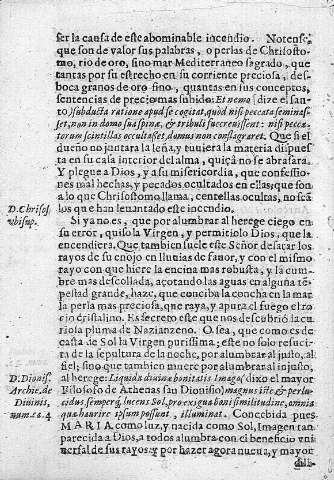 ser la causa de este abominable incendio. Notense,
que son de valor sus palabras, o perlas de Chrisosto-
mo, rio de oro, sino mar Mediterraneo sagrado, que
tantas por su estrecho en su corriente preciosa, des-
boca granos de oro fino, quantas en sus conceptos,
sentencias de precio mas subido: Et nemo (dize el san-
to) subducta ratione apud se cogitat, quod nisi peccata seminas-
set, non in domo sua spinæ, & tribuli succrevissent: nisi pecca-
torum scintillas occultasset, domus non conflagraret. Que si el
dueño no juntara la leña, y tuviera la materia dispues
ta en su casa interior del alma, quiçà no se abrasara.
Y plegue a Dios, y a su misericordia, que confessio-
nes mal hechas, y pecados ocultados en ellas, que son
a lo que Chrisostomo llama, centellas ocultas, no seã
los que han levantado este incendio.
D. Chrisos.
ubi sup.
Si ya no es, que por alumbrar al herege ciego en
su error, quiso la Virgen, y permitiolo Dios, que la
encendiera. Que tambien suele este Señor desatar los
rayos de su enojo en lluvias de favor, y con el mismo
rayo con que hiere la encina mas robusta, y la cum-
bre mas descollada, açotando las aguas en alguna tẽ
pestad grande, haze, que conciba la concha en la mar
la perla mas preciosa, que raya, y apura el fuego el ro-
zio cristalino. Es secreto este que nos descubriò la cu
riosa pluma de Nazianzeno. O sea, que como es de
casta de Sol la Virgen purissima; este no solo resuci-
ta de la sepultura de la noche, por alumbrar al justo, al
fiel; sino que tambien muere por alumbrar al injusto,
al herege: Liquida divinæ bonitatis Imago (dixo el mayor
Filosofo de Athenas san Dionisio) magnus iste & perlu-
cidus, semperq́; lucens Sol, pro exigua boni similitudine, omnia
quæ haurire ipsum possunt, illuminat. Concebida pues
MARIA como luz, y nacida como Sol, Imagen tan
parecida a Dios, a todos alumbra con el beneficio uni
versal de sus rayos: y por hazer agora nueva, y mayor
D. Dionis.
Archie. de
Divinis,
num. c. 4